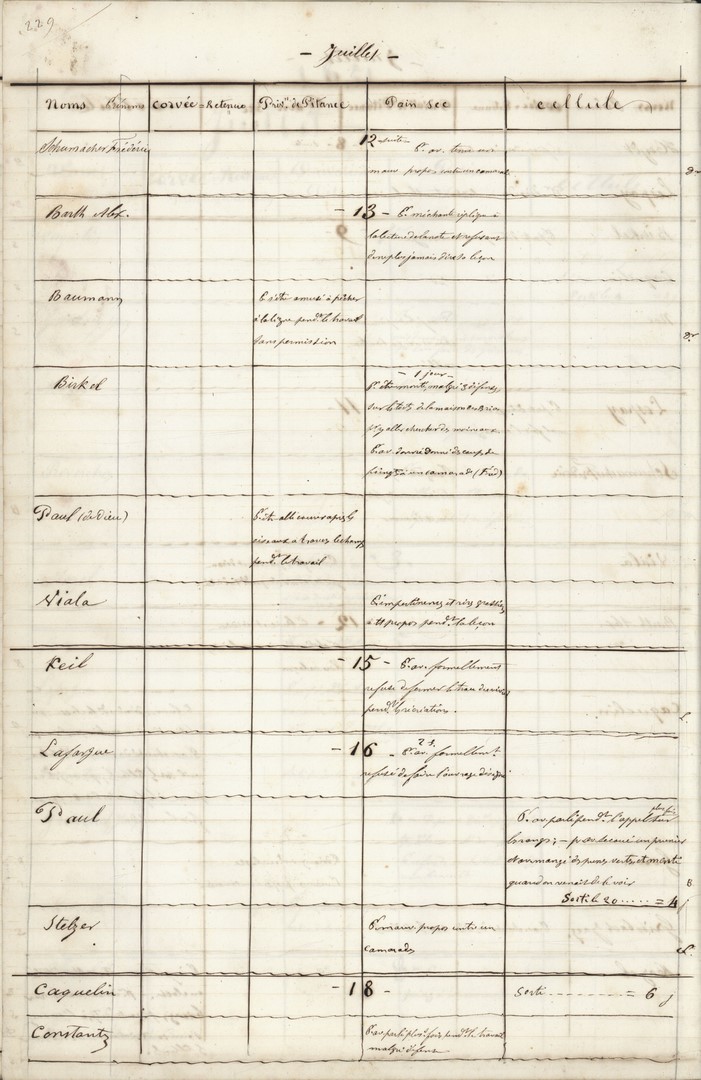 229
- Juillet -
Noms Prénoms Corvée = Retenue Priv.on de Pitance Pain sec cellule
Schumacher Frédéric 12 suite P. av. tenu un
mauv. propos contre un camarade
Barth Alex. - 13 - P. méchante réplique à
la lecture de la note et refusant
de ne plus jamais dire sa leçon
Baumann P. s'être amusé à pêcher
à la ligne pend.t le travail
sans permission
Birkel - 1 jour -
P. être monté, malgré défense,
sur le toit de la maison
p. y aller chercher des moineaux.
P. av. donné des coups de
poing à un camarade (Fréd)
Paul (de Dieu) P. être allé courir après les
oiseaux à travers le champ
pend.t le travail
Viala P. impertinences et rires
à tt propos pend.t la leçon
Keil - 15 - P. av. formellement
refusé de fermer le
pend.t la récréation.
Lafargue - 16 - P. av. 2 f. formellem.t
refusé de faire l'ouvrage désigné
Paul P. av. parlé pend.t l'appel
les rangs; - p. av. secoué un prunier
et av. mangé des prunes vertes, et menti
quand on venait de le voir
Sorti le 20 ..... = 4 j
Stelzer P. mauv. propos contre un
camarade
Caquelin - 18 - Sorti --------- = 6 j
Constantz P. av. parlé plus. fois pend.t le travail
malgré défense